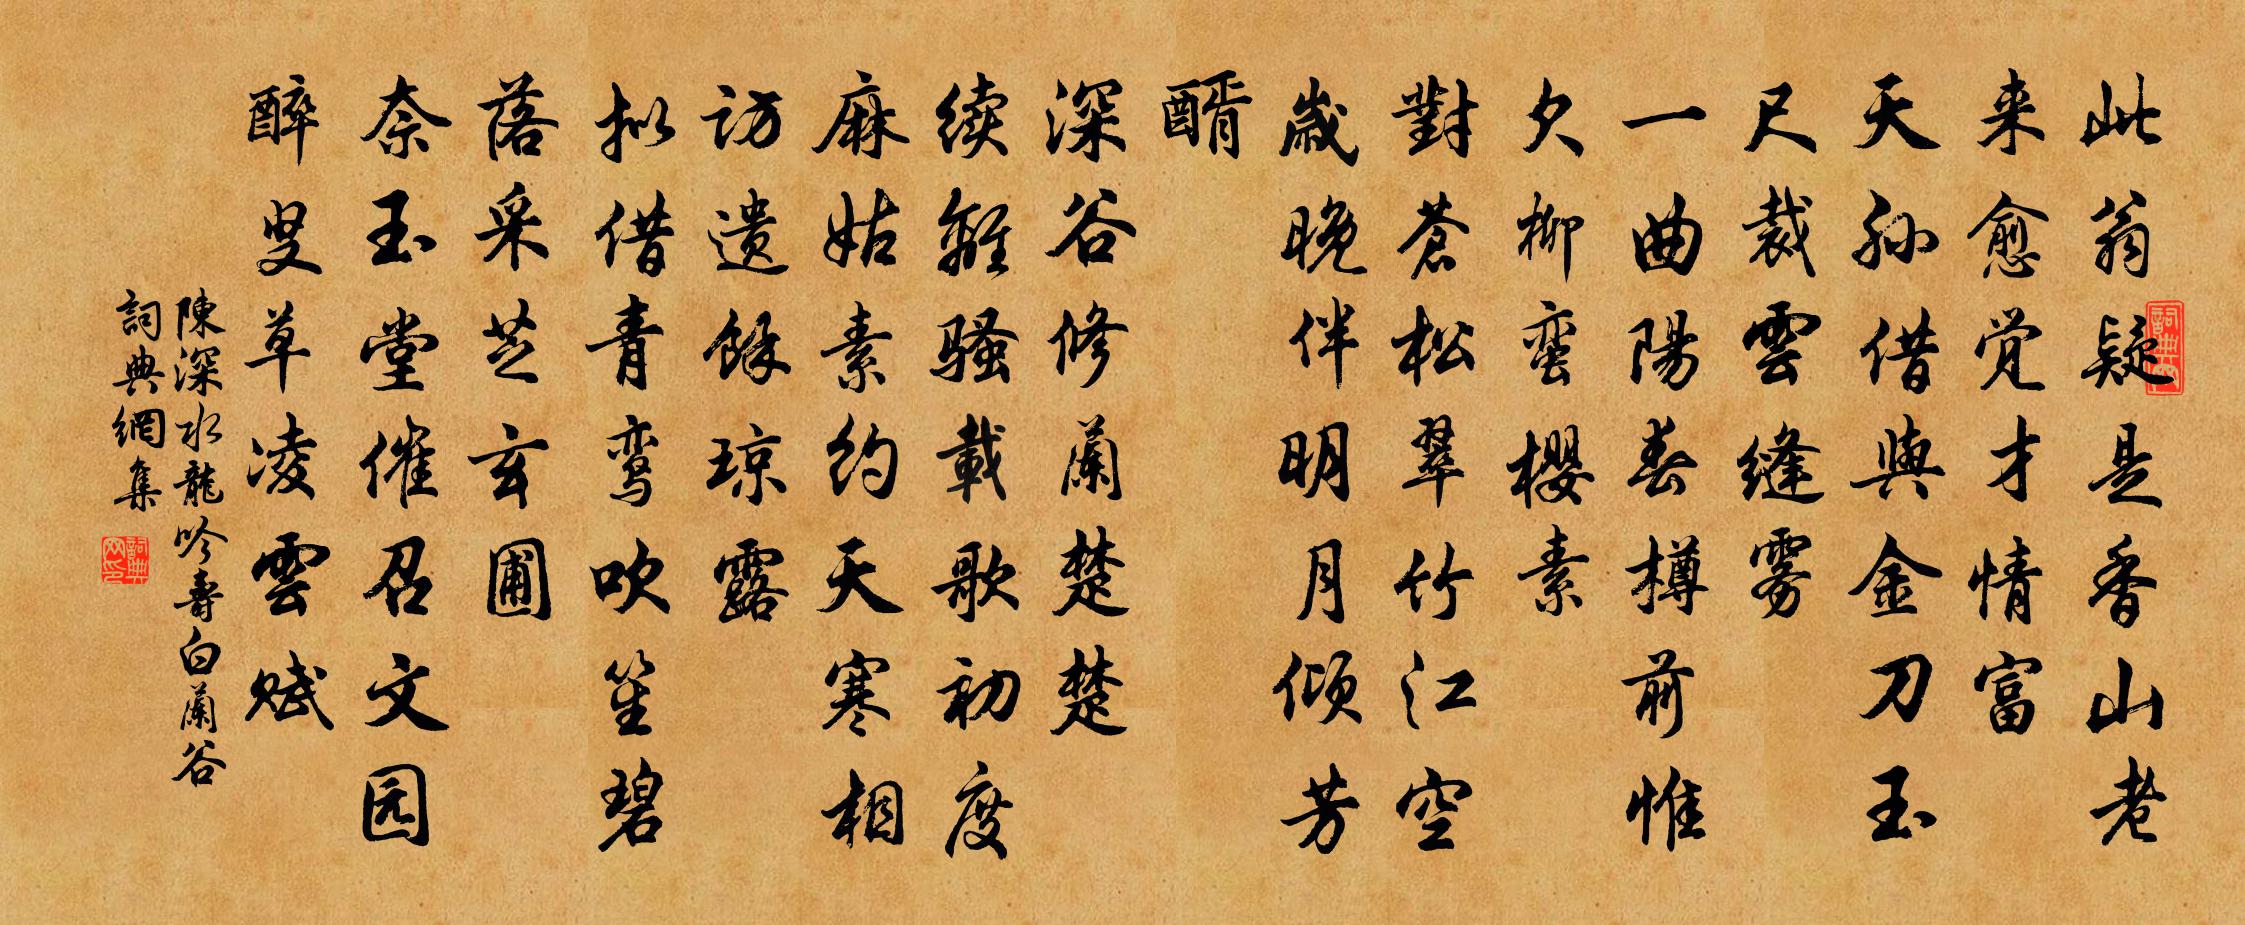 此翁疑是香山老
来愈觉才情富
天孙借與金刀玉
尺裁雲缝雾
一曲陽春樽前惟
欠柳蛮樱素
對蒼松翠竹江空
歲晚伴明月倾芳
醑
深谷修蘭楚楚
续離骚載歌初度
麻姑素约天寒相
访遗餘琼露
拟借青鸾吹笙碧
落采芝玄圃
奈玉堂催召文园
醉叟草凌雲赋
陳深水龍吟壽白蘭谷
詞典網集
詞典网
詞典网印